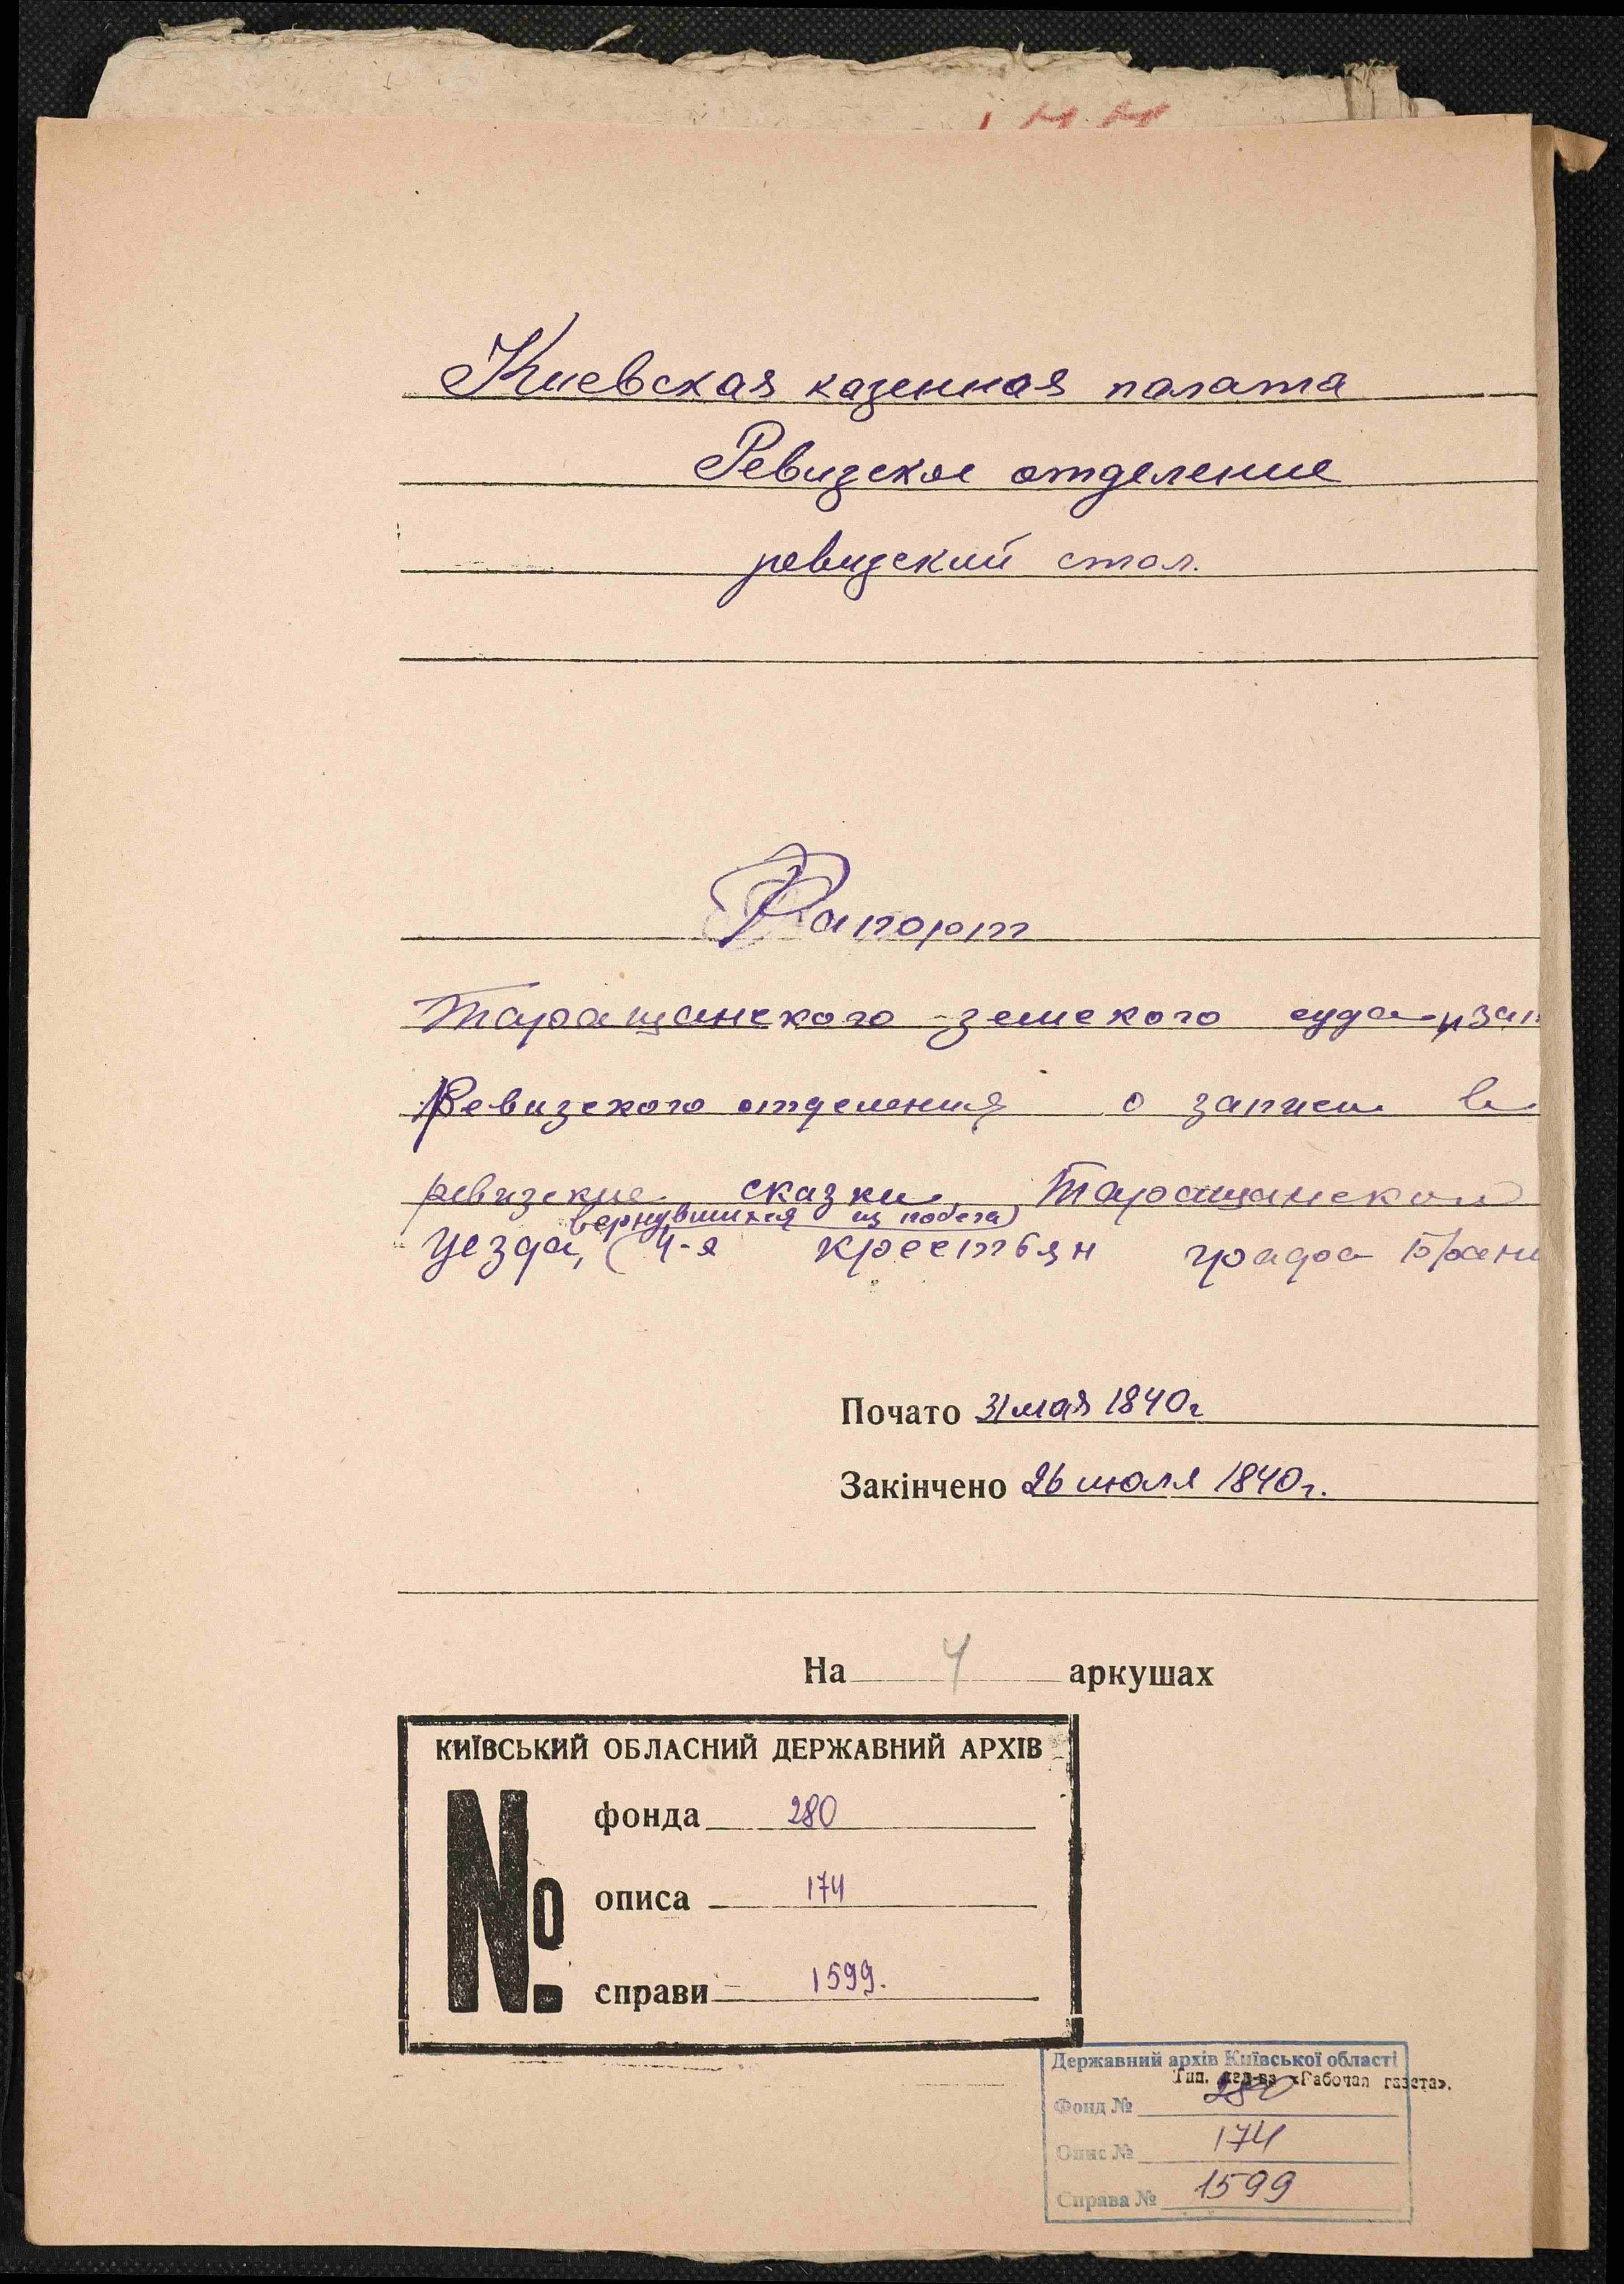 Киевская казенная палата
Ревизское отделение
ревизский стол.
Рапорт
Таращанского земского суда и зап
Ревизского отделения о записи в
ревизские сказки Таращанского
вернувшихся из побега)
уезда, (4-я крестьян графа Брани
Почато 31 мая 1840 г
Закінчено 26 июля 1840 г.
На 4 аркушах
КИЇВСЬКИЙ ОБЛАСНИЙ ДЕРЖАВНИЙ АРХІВ
№ фонда 280
описа 174
справи 1599.
Державний архів Київської області
Тип. изд-ва «Рабочая газета».
Фонд № 280
Опис № 174
Справа № 1599